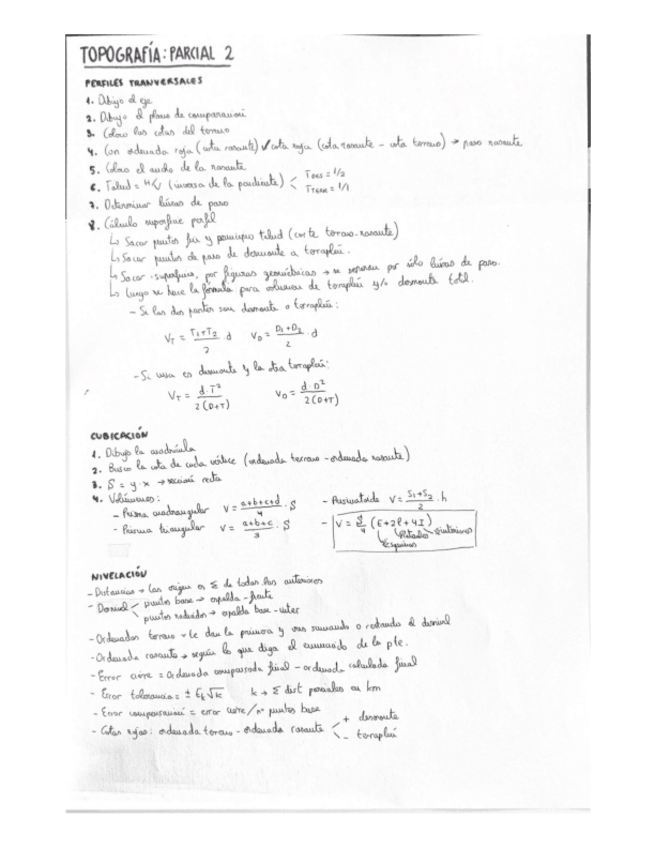 TOPOGRAFÍA: PARCIAL 2
PERFILES TRANVERSALES
1. Dibujo el eje
2. Dibujo el plano de comparación
3. Coloco las cotas del terreno
4. Con ordenada roja (cota rasante) ✓ cota roja (cota rasante - cota terreno) → paso rasante
5. Coloco el ancho de la rasante
6. Talud = H/V (inversa de la pendiente) < TDES = 1/2
TTERR = 1/1
7. Determinar líneas de paso
8. Cálculo superficie perfil
↳ Sacar puntos fin y principio talud (corte terreno-rasante)
↳ Sacar puntos de paso de desmonte a terraplén.
↳ Sacar superficies, por figuras geométricas → se separan por sólo líneas de paso.
↳ Luego se hace la fórmula para volumen de terraplén y/o desmonte total.
- Si las dos partes son desmonte o terraplén:
VT = T1+T2/2 · d VD = D1+D2/2 · d
- Si una es desmonte y la otra terraplén:
VT = d·T²/2(D+T) VD = d·D²/2(D+T)
CUBICACIÓN
1. Dibujo la cuadrícula
2. Busco la cota de cada vértice (ordenada terreno - ordenada rasante)
3. S = y·x → sección recta
4. Volúmenes:
- Prisma cuadrangular V = a+b+c+d/4 · S
- Prisma triangular V = a+b+c/3 · S
- Prismatoide V = S1+S2/2 · h
- V = S/4 (E+2P+4I)
Esquinas Interiores
NIVELACIÓN
- Distancias → las origen es Σ de todas las anteriores
- Desnivel < puntos base → espalda - frente
puntos radiados → espalda base - inter
- Ordenadas terreno → te dan la primera y vas sumando o restando el desnivel
- Ordenada rasante → según lo que diga el enunciado de la pte.
- Error cierre = Ordenada compensada final - ordenada calculada final
- Error tolerancia = ± Ek√K k → Σ dist parciales en km
- Error compensación = error cierre / nº puntos base
- Cotas rojas: ordenada terreno - ordenada rasante < + desmonte
- terraplén